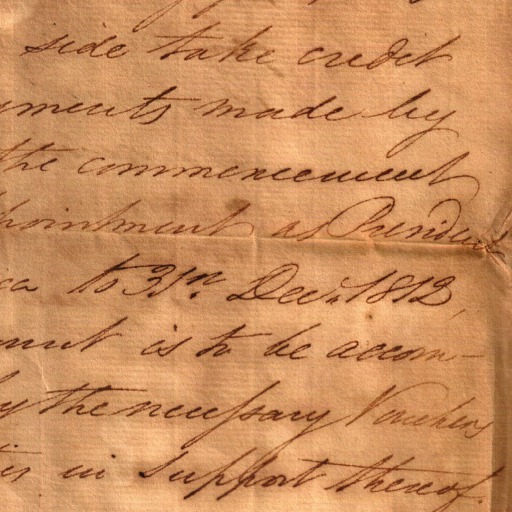 side take credit
yments made by
the commencement
ppointment as President
ca to 31st. Decr. 1812,
ount is to be accom-
by the necessary Vouchers
ies in support thereof.